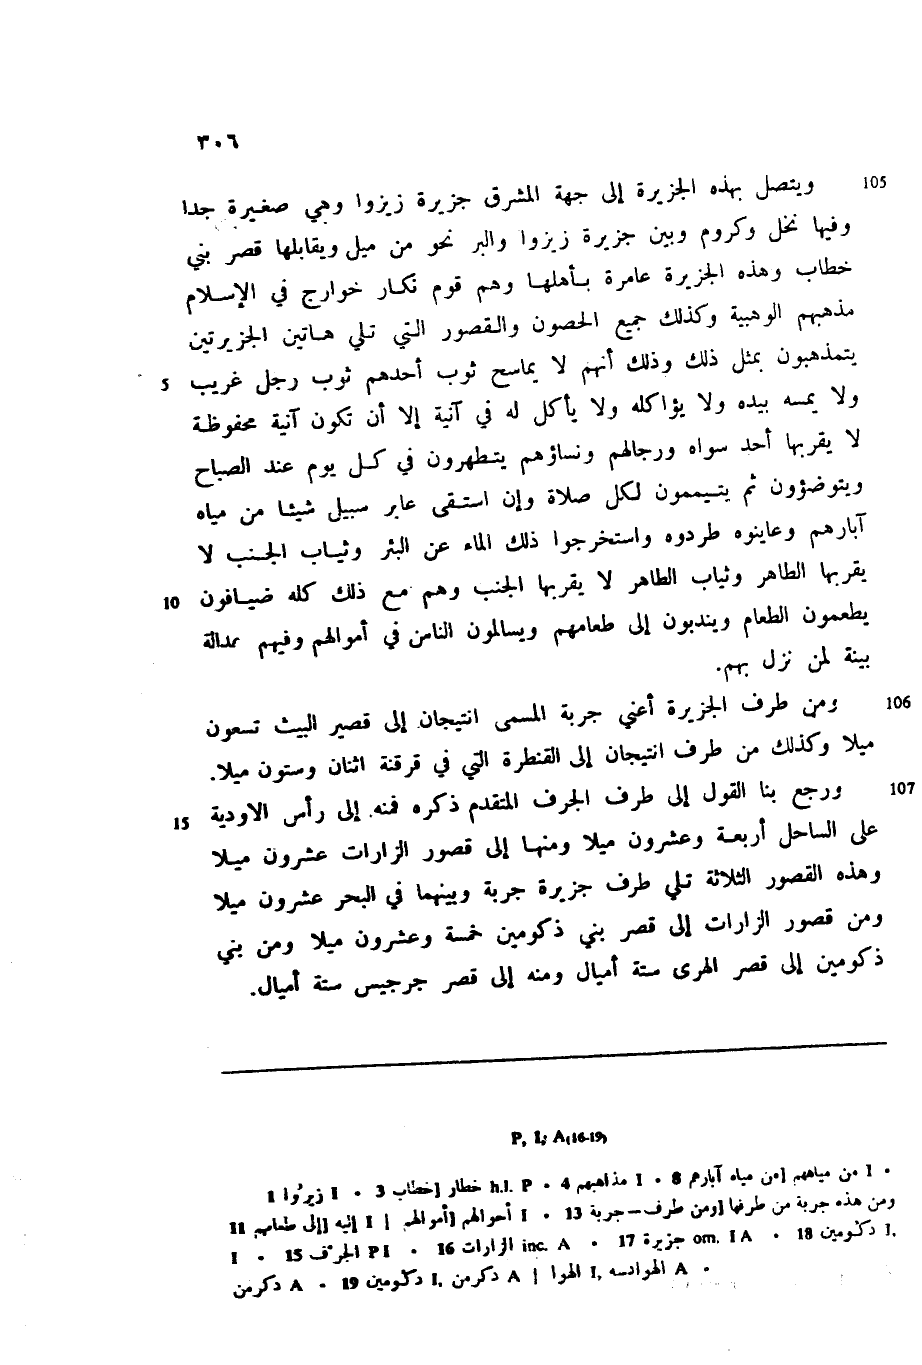 ٣٠٦
105 ويتصل بهذه الجزيرة إلى جهة المشرق جزيرة زيزوا وهي صغيرة جدا
وفيها نخل وكروم وبين جزيرة زيزوا والبر نحو من ميل ويقابلها قصر بني
خطاب وهذه الجزيرة عامرة بأهلها وهم قوم نكار خوارج في الإسلام
مذهبهم الوهبية وكذلك جميع الحصون والقصور التي تلي هاتين الجزيرتين
5 يتمذهبون بمثل ذلك وذلك أنهم لا يماسح ثوب أحدهم ثوب رجل غريب
ولا يمسه بيده ولا يؤاكله ولا يأكل له في آنية إلا أن تكون آنية محفوظة
لا يقربها أحد سواه ورجالهم ونساؤهم يتطهرون في كل يوم عند الصباح
ويتوضؤون ثم يتيممون لكل صلاة وإن استقى عابر سبيل شيئا من مياه
آبارهم وعاينوه طردوه واستخرجوا ذلك الماء عن البئر وثياب الجنب لا
10 يقربها الطاهر وثياب الطاهر لا يقربها الجنب وهم مع ذلك كله ضيافون
يطعمون الطعام ويندبون إلى طعامهم ويسالمون الناس في أموالهم وفيهم عدالة
بينة لمن نزل بهم.
106 ومن طرف الجزيرة أعني جربة المسمى انتيجان إلى قصير البيث تسعون
ميلا وكذلك من طرف انتيجان إلى القنطرة التي في قرقنة اثنان وستون ميلا.
107 15 ورجع بنا القول إلى طرف الجرف المتقدم ذكره فمنه إلى رأس الاودية
على الساحل أربعة وعشرون ميلا ومنها إلى قصور الزارات عشرون ميلا
وهذه القصور الثلاثة تلي طرف جزيرة جربة وبينهما في البحر عشرون ميلا
ومن قصور الزارات إلى قصر بني ذكومين خمسة وعشرون ميلا ومن بني
ذكومين إلى قصر الهرى ستة أميال ومنه إلى قصر جرجيس ستة أميال.
P, I; A(16-19)
1 زيرُوا I • 3 خطاب] خطار h.l. P • 4 مذاهبهم I • 8 من مياه آبارهم] من مياههم I •
11 إلى طعامهم] إليه I | أموالهم] أحوالهم I • 13 ومن طرف–جربة] ومن هذه جربة من طرفها
I • 15 الجرف P I • 16 الزارات inc. A • 17 جزيرة om. I A • 18 دكومين I,
دكرمن A • 19 دكومين I, دكرمن A | الهوا I, الهوادسه A •